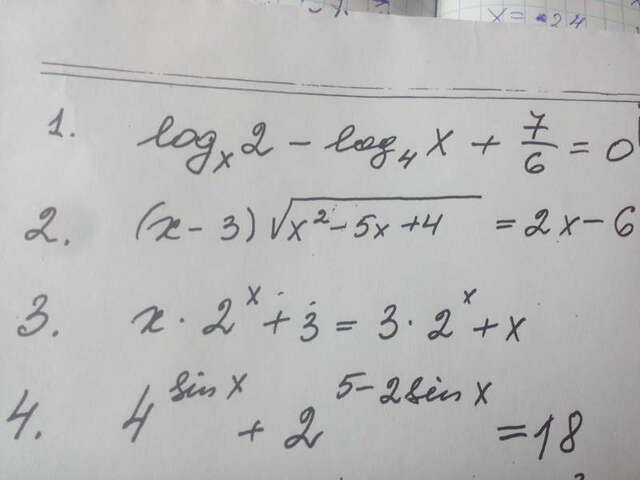 x = -24
1. log_x 2 - log_4 x + 7/6 = 0
2. (x - 3) √(x² - 5x + 4) = 2x - 6
3. x · 2^x + 3 = 3 · 2^x + x
4. 4^(sin x) + 2^(5 - 2 sin x) = 18